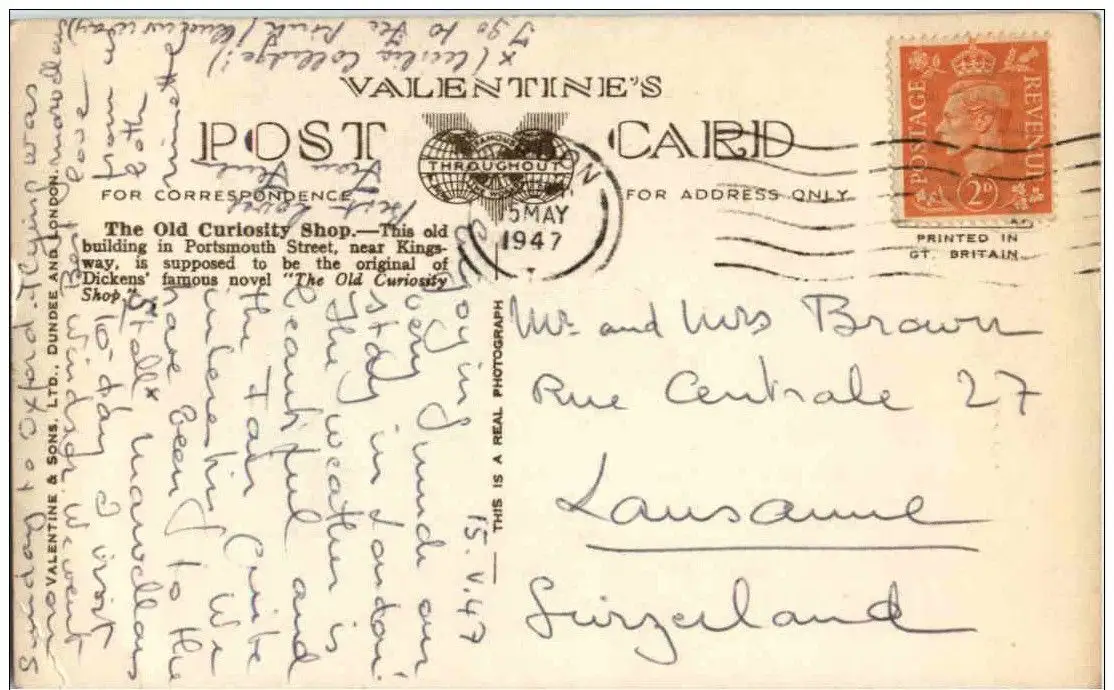 VALENTINE'S
POST CARD
THROUGHOUT
FOR CORRESPONDENCE
FOR ADDRESS ONLY
The Old Curiosity Shop.—This old
building in Portsmouth Street, near Kings-
way, is supposed to be the original of
Dickens' famous novel "The Old Curiosity
Shop."
POSTAGE
REVENUE
2D
5 MAY
1947
PRINTED IN
GT. BRITAIN
THIS IS A REAL PHOTOGRAPH
VALENTINE & SONS, LTD., DUNDEE AND LONDON.
Mr and Mrs Brown
Rue Centrale 27
Lausanne
Switzerland
15.V.47
Enjoying much our
very
stay in London
The weather is
beautiful and
the Fair quite
interesting. We
have been to the
"Stoll* marvellous
to-day I visit
Windsor, we went
Sunday to Oxford
was
both
from
Best love
* (Cecilia Colledge!)
I go to